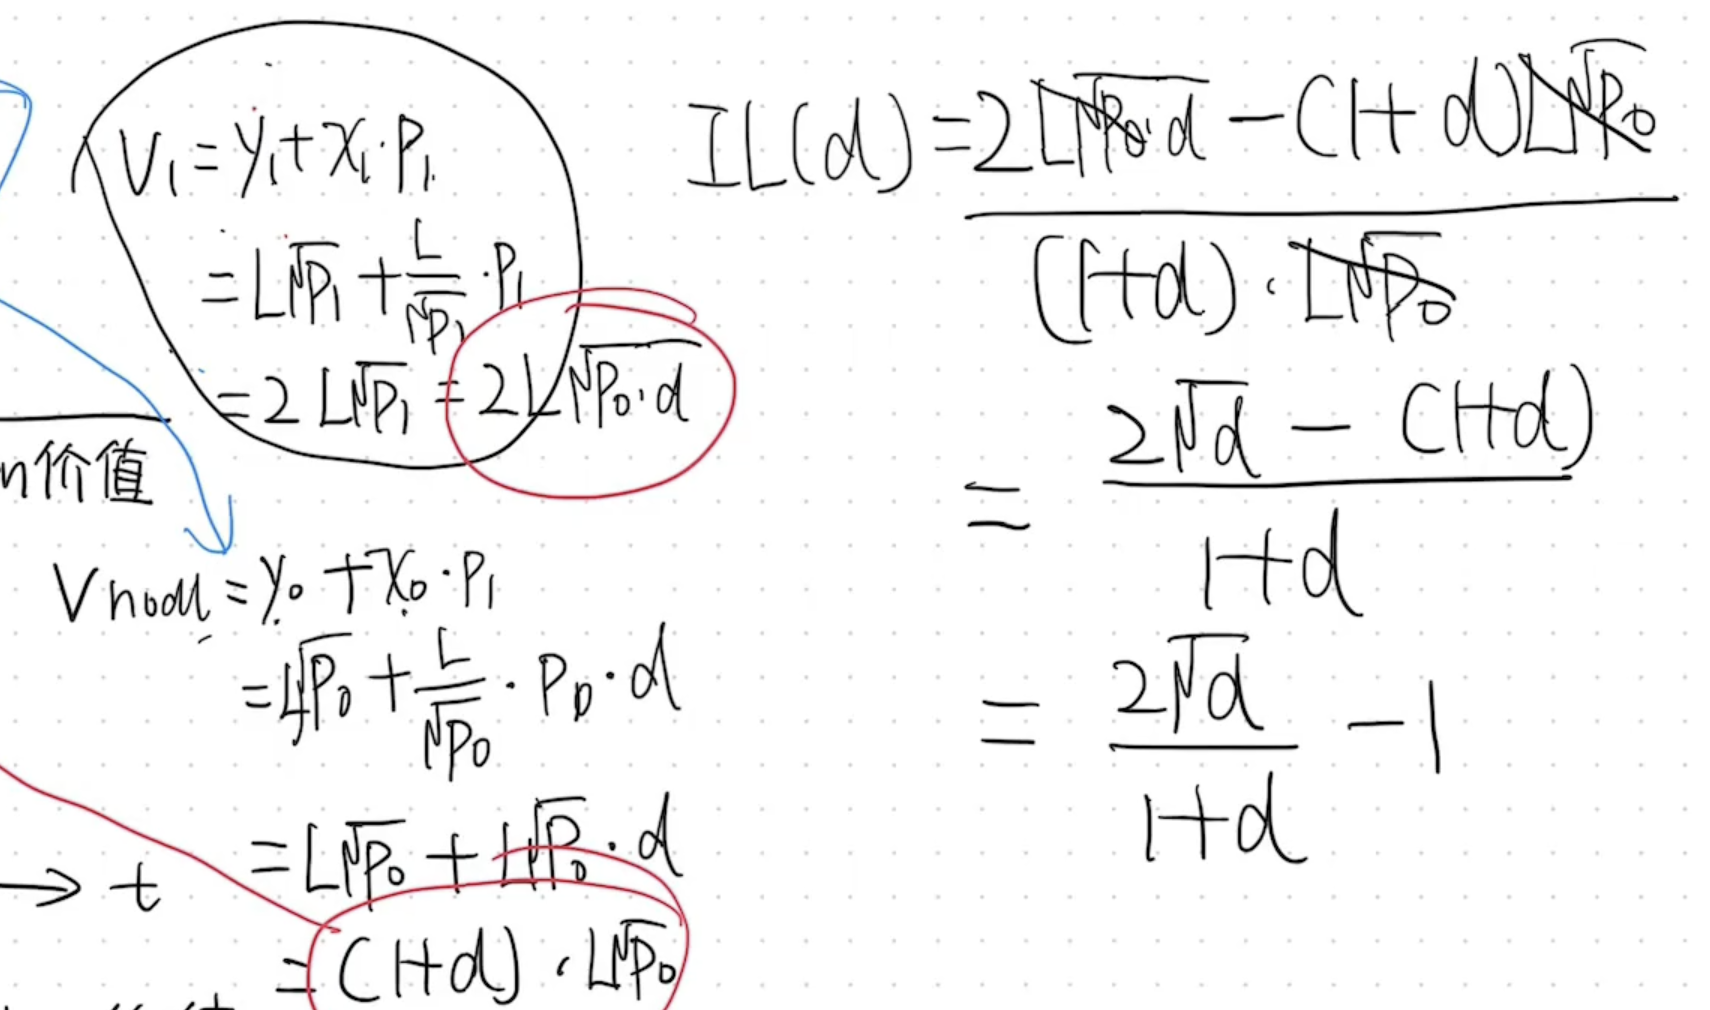 V₁ = y₁ + x₁·P₁
= L√P₁ + L/√P₁ · P₁
= 2L√P₁ = 2L√(P₀·d)
n价值
V hodl = y₀ + x₀·P₁
= L√P₀ + L/√P₀ · P₀·d
= L√P₀ + L√P₀·d
→ t
= (1+d)·L√P₀
IL(d) = (2L√(P₀·d) − (1+d)L√P₀) / ((1+d)·L√P₀)
= (2√d − (1+d)) / (1+d)
= 2√d / (1+d) − 1